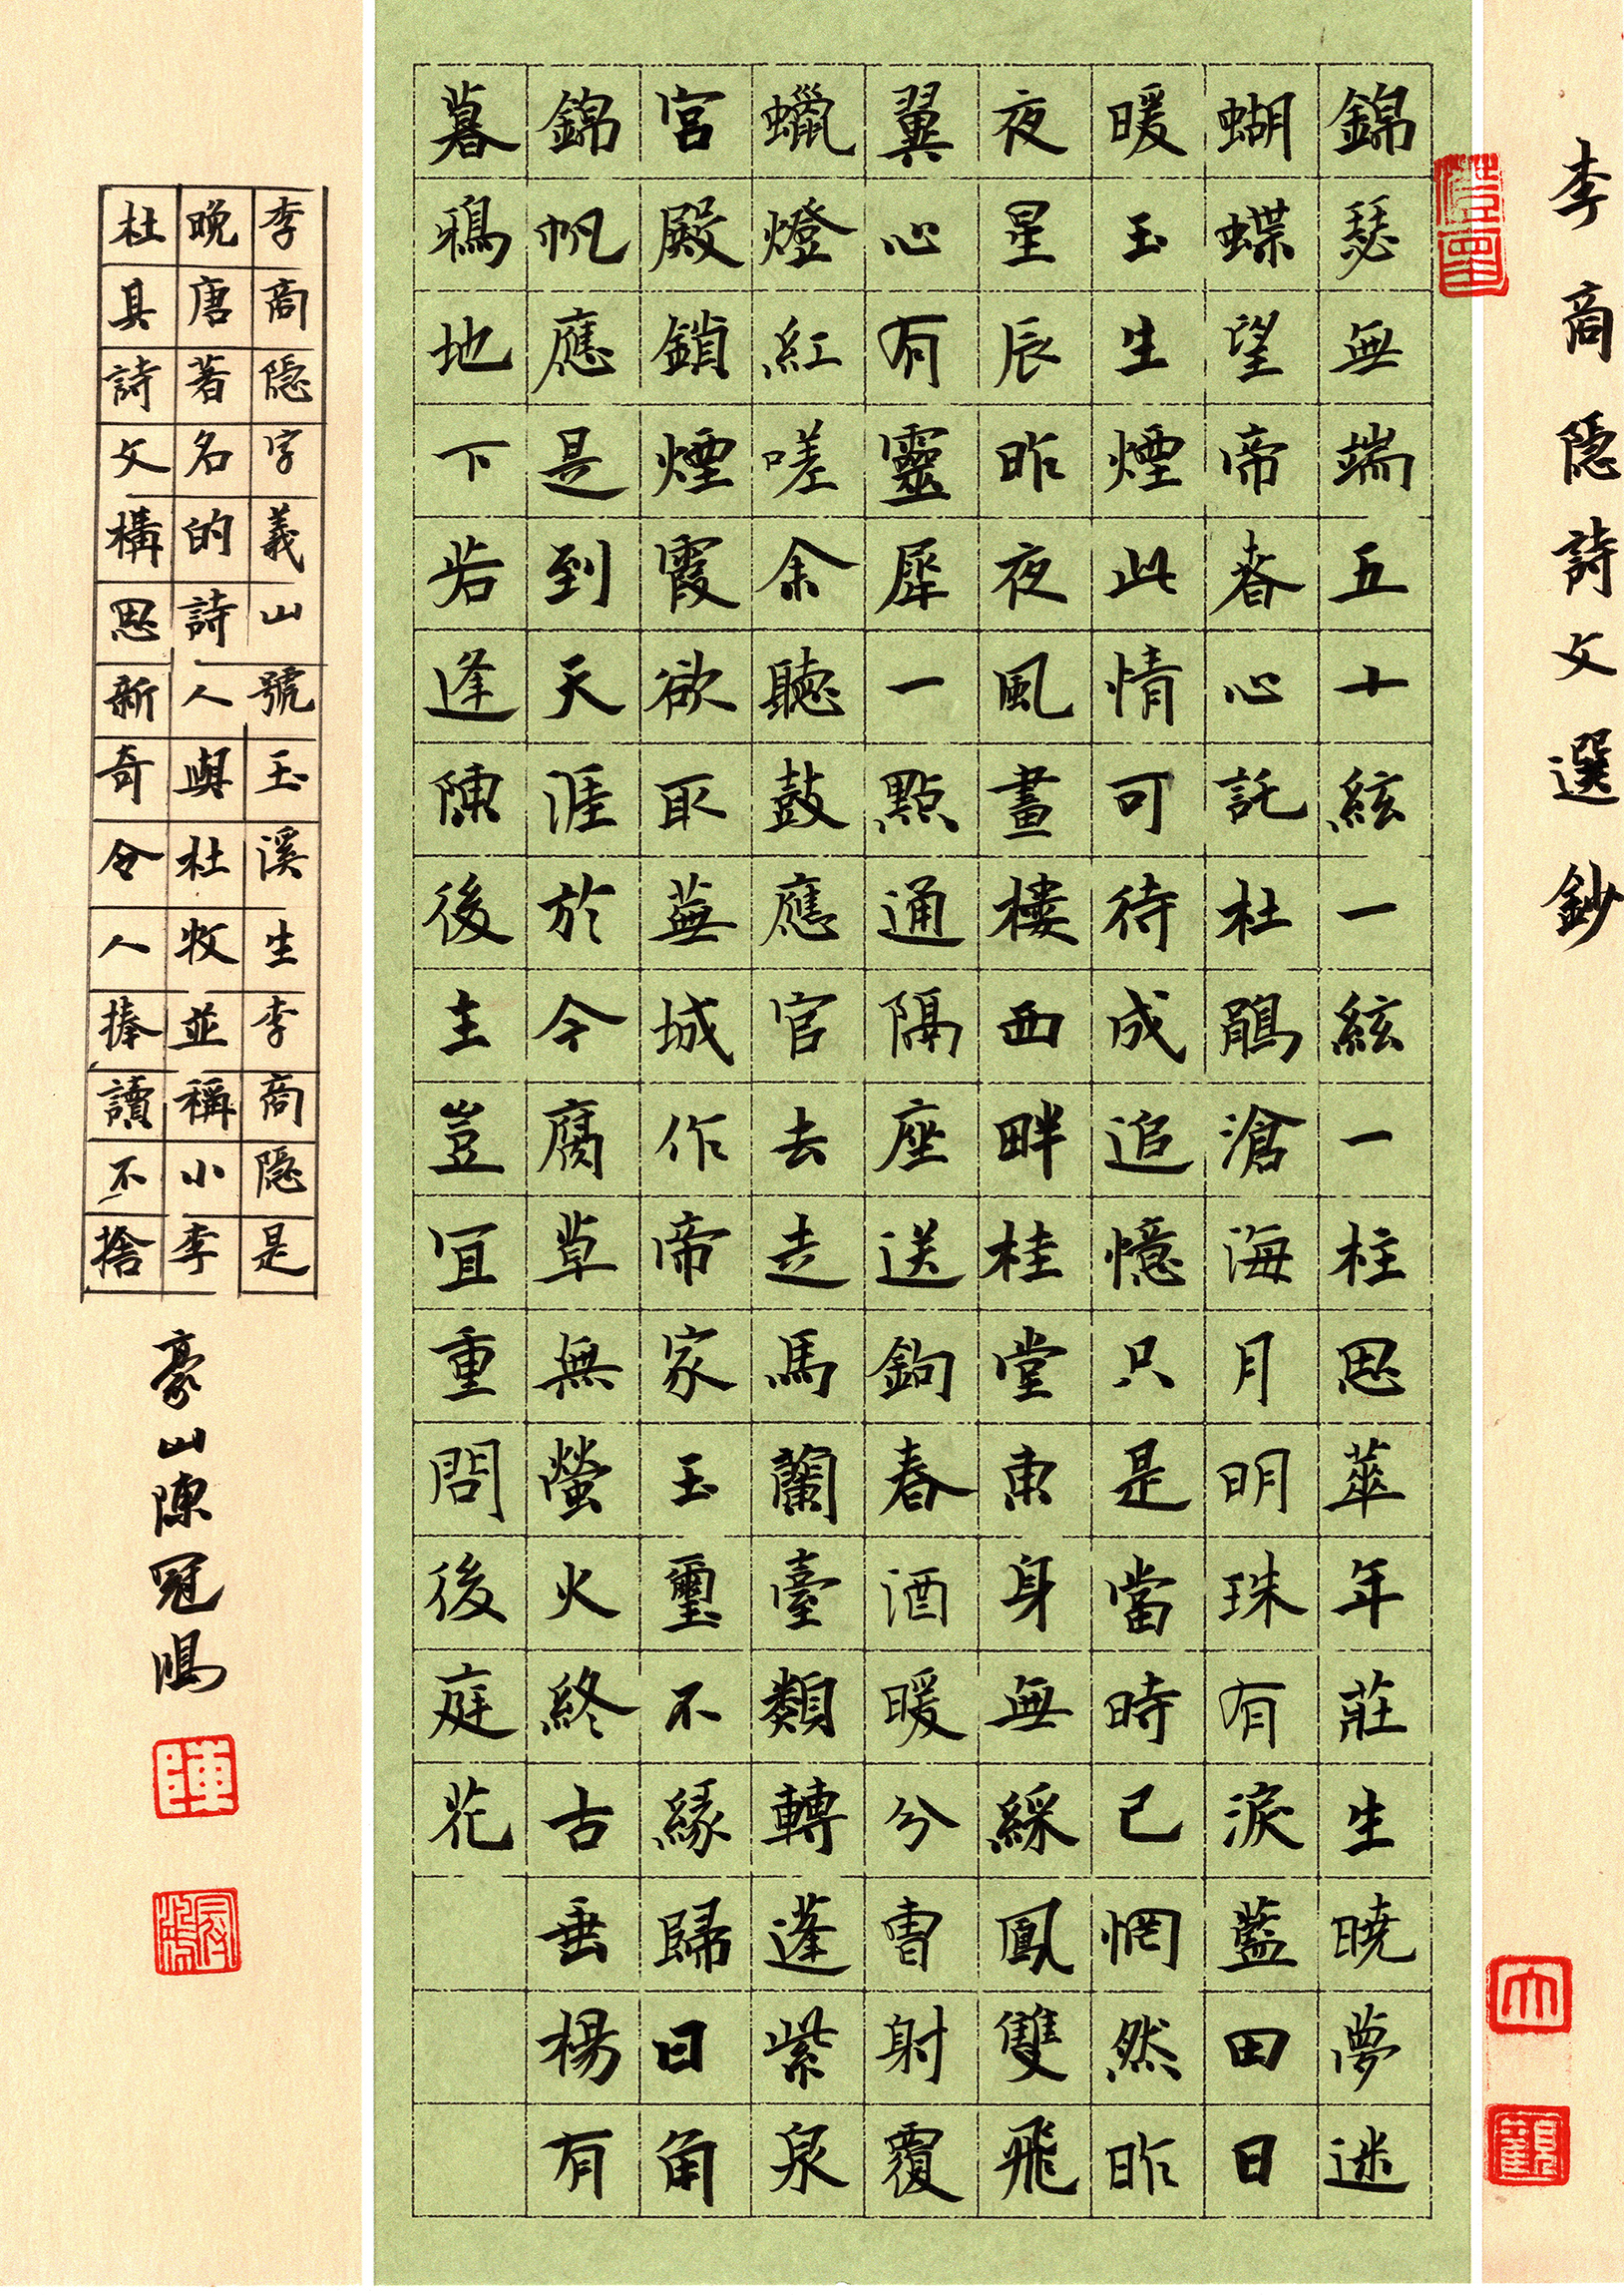 李商隱詩文選鈔
錦瑟無端五十絃一絃一柱思華年莊生曉夢迷
蝴蝶望帝春心託杜鵑滄海月明珠有淚藍田日
暖玉生煙此情可待成追憶只是當時已惘然昨
夜星辰昨夜風畫樓西畔桂堂東身無綵鳳雙飛
翼心有靈犀一點通隔座送鉤春酒暖分曹射覆
蠟燈紅嗟余聽鼓應官去走馬蘭臺類轉蓬紫泉
宮殿鎖煙霞欲取蕪城作帝家玉璽不緣歸日角
錦帆應是到天涯於今腐草無螢火終古垂楊有
暮鴉地下若逢陳後主豈宜重問後庭花
李商隱字義山號玉溪生李商隱是
晚唐著名的詩人與杜牧並稱小李
杜其詩文構思新奇令人捧讀不捨
豪山陳冠鳴
陳
大
觀